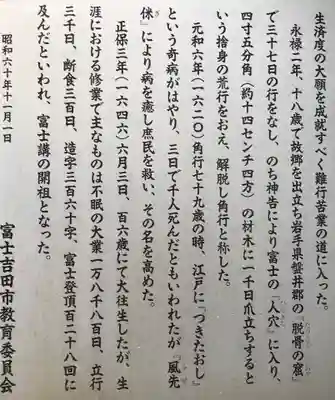 生済度の大願を成就すべく難行苦業の道に入った。
永禄二年、十八歳で故郷を出立ち岩手県磐井郡の『脱骨の窟』
で三十七日の行をなし、のち神告により富士の『人穴』に入り、
四寸五分角（約十四センチ四方）の材木に一千日爪立ちすると
いう捨身の荒行をおえ、解脱し角行と称した。
元和六年（一六二〇）角行七十九歳の時、江戸に『つきたおし』
という奇病がはやり、三日で千人死んだともいわれたが『風先
㑶』により病を癒し庶民を救い、その名を高めた。
正保三年（一六四六）六月三日、百六歳にて大往生したが、生
涯における修業で主なものは不眠の大業一万八千八百日、立行
三千日、断食三百日、造字三百六十字、富士登頂百二十八回に
及んだといわれ、富士講の開祖となった。
昭和六十年十一月一日
富士吉田市教育委員会